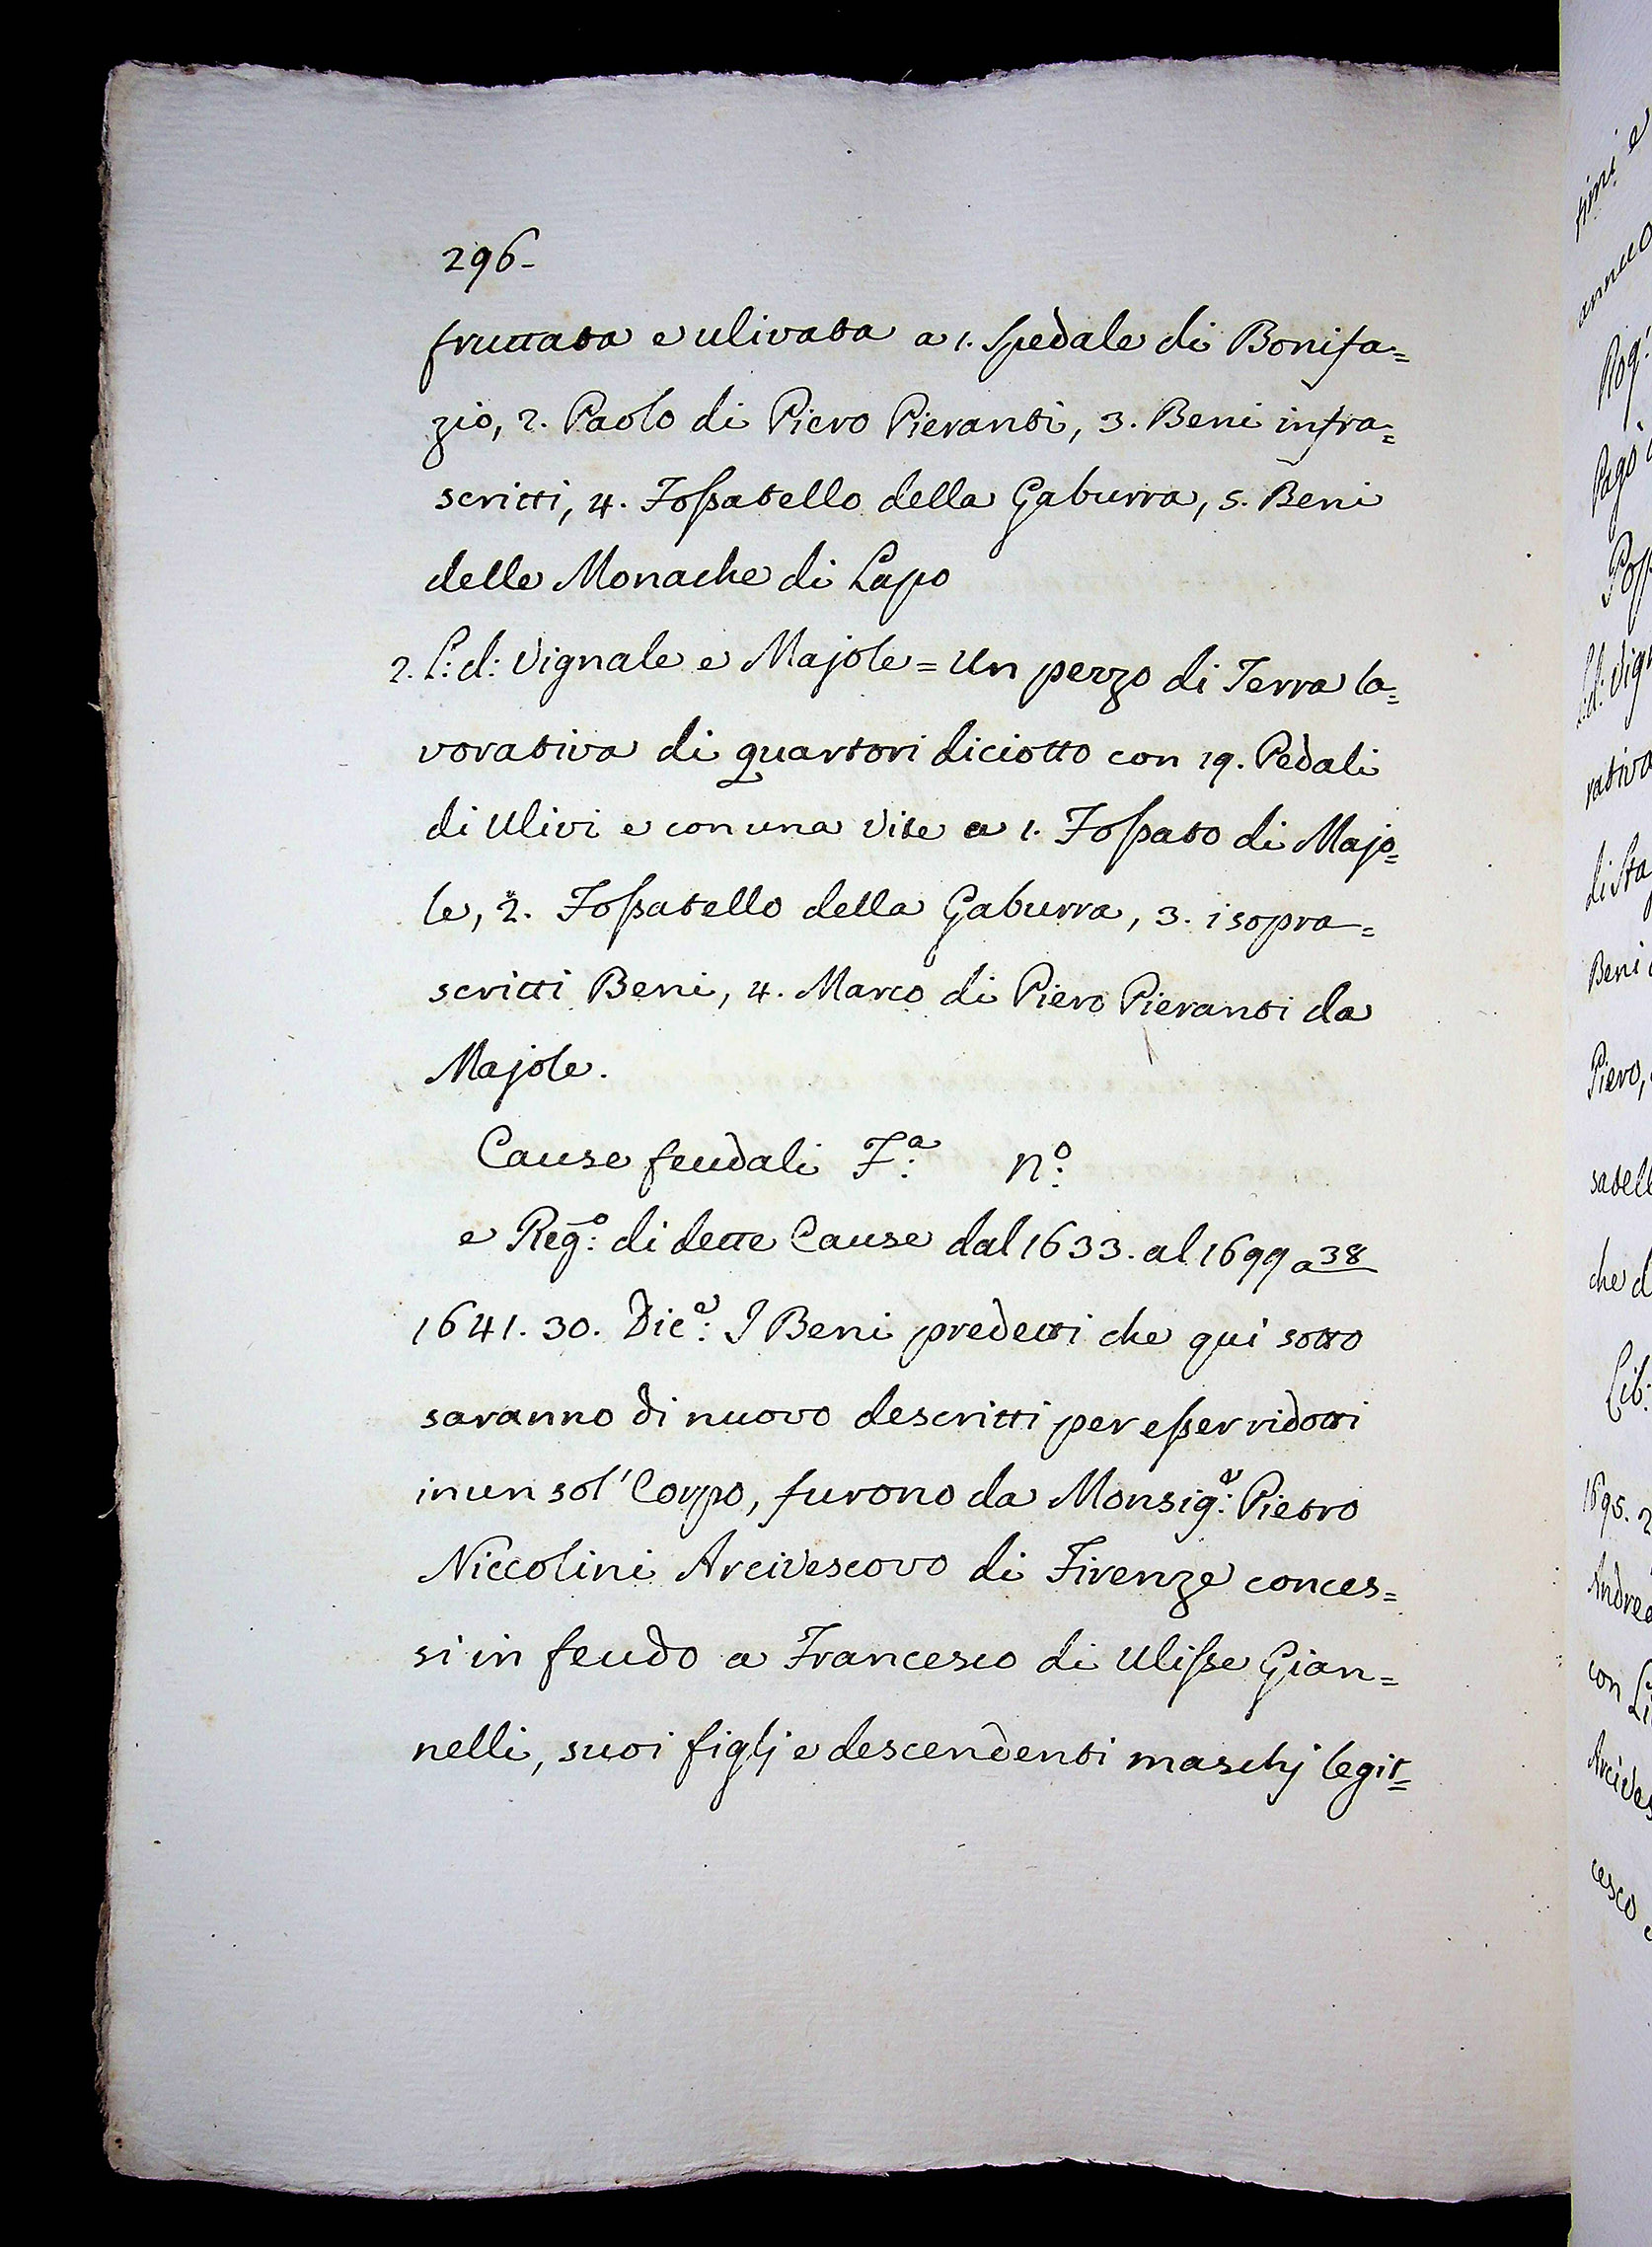 296-
fruttata e ulivata a 1. Spedale di Bonifa=
zio, 2. Paolo di Piero Pieranti, 3. Beni infra=
scritti, 4. Foſsatello della Gaburra, 5. Beni
delle Monache di Lapo
2. L: d: Vignale e Majole = Un pezzo di Terra la=
vorativa di quartori diciotto con 19. Pedali
di Ulivi e con una Vite a 1. Foſsato di Majo=
le, 2. Foſsatello della Gaburra, 3. i sopra=
scritti Beni, 4. Marco di Piero Pieranti da
Majole.
Cause feudali F:ª N:º
e Reg:º di dette Cause dal 1633. al 1699 a 38
1641. 30. Dic:e I Beni predetti che qui sotto
saranno di nuovo descritti per eſser ridotti
in un sol' Corpo, furono da Monsig:e Pietro
Niccolini Arcivescovo di Firenze conces=
si in feudo a Francesco di Uliſse Gian=
nelli, suoi figlj e descendenti maschj legit=
rini e
annuo
Rog:
Pago
Poſs
L:d: Vign
rativa
di Sta
Beni
Piero,
satell
che d
Lib:
1695. 2
Andrea
con Li
Arcives
cesco